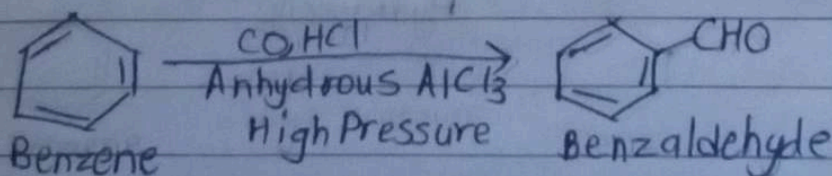 CO,HCl
CHO
Anhydrous AlCl3
High Pressure
Benzene
Benzaldehyde